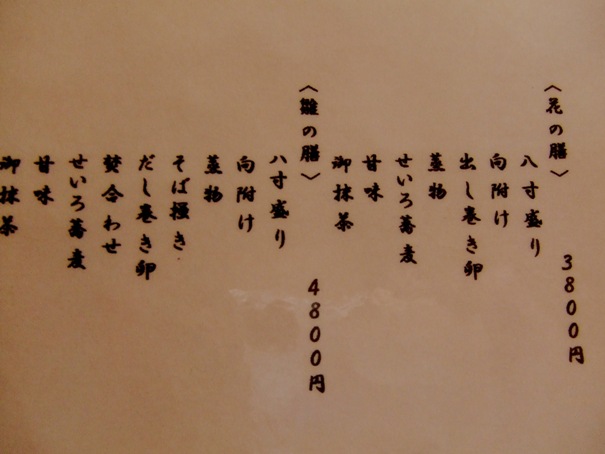 〈花の膳〉 3800円
八寸盛り
向附け
出し巻き卵
蒸物
せいろ蕎麦
甘味
御抹茶
〈雛の膳〉 4800円
八寸盛り
向附け
蒸物
そば掻き
だし巻き卵
焚合わせ
せいろ蕎麦
甘味
御抹茶